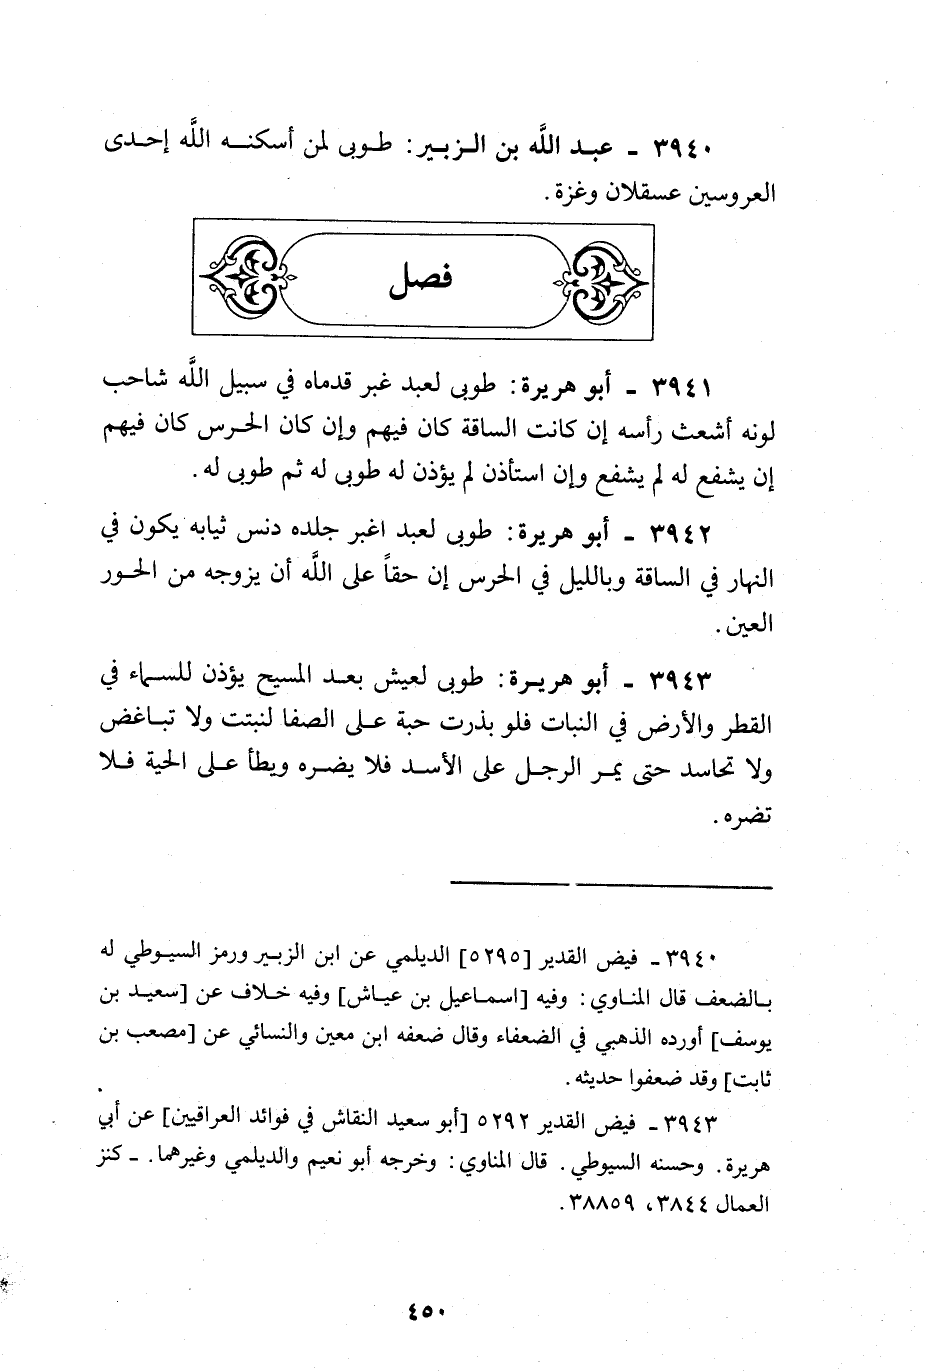 ٣٩٤٠ ـ عبد اللَّه بن الزبير: طوبى لمن أسكنه اللَّه إحدى
العروسين عسقلان وغزة.
فصل
٣٩٤١ ـ أبو هريرة: طوبى لعبد غبر قدماه في سبيل اللَّه شاحب
لونه أشعث رأسه إن كانت الساقة كان فيهم وإن كان الحرس كان فيهم
إن يشفع له لم يشفع وإن استأذن لم يؤذن له طوبى له ثم طوبى له.
٣٩٤٢ ـ أبو هريرة: طوبى لعبد اغبر جلده دنس ثيابه يكون في
النهار في الساقة وبالليل في الحرس إن حقاً على اللَّه أن يزوجه من الحور
العين.
٣٩٤٣ ـ أبو هريرة: طوبى لعيش بعد المسيح يؤذن للسماء في
القطر والأرض في النبات فلو بذرت حبة على الصفا لنبتت ولا تباغض
ولا تحاسد حتى يمر الرجل على الأسد فلا يضره ويطأ على الحية فلا
تضره.
٣٩٤٠ ـ فيض القدير [٥٢٩٥] الديلمي عن ابن الزبير ورمز السيوطي له
بالضعف قال المناوي: وفيه [اسماعيل بن عياش] وفيه خلاف عن [سعيد بن
يوسف] أورده الذهبي في الضعفاء وقال ضعفه ابن معين والنسائي عن [مصعب بن
ثابت] وقد ضعفوا حديثه.
٣٩٤٣ ـ فيض القدير ٥٢٩٢ [أبو سعيد النقاش في فوائد العراقيين] عن أبي
هريرة. وحسنه السيوطي. قال المناوي: وخرجه أبو نعيم والديلمي وغيرهما. ـ كنز
العمال ٣٨٤٤، ٣٨٨٥٩.
٤٥٠